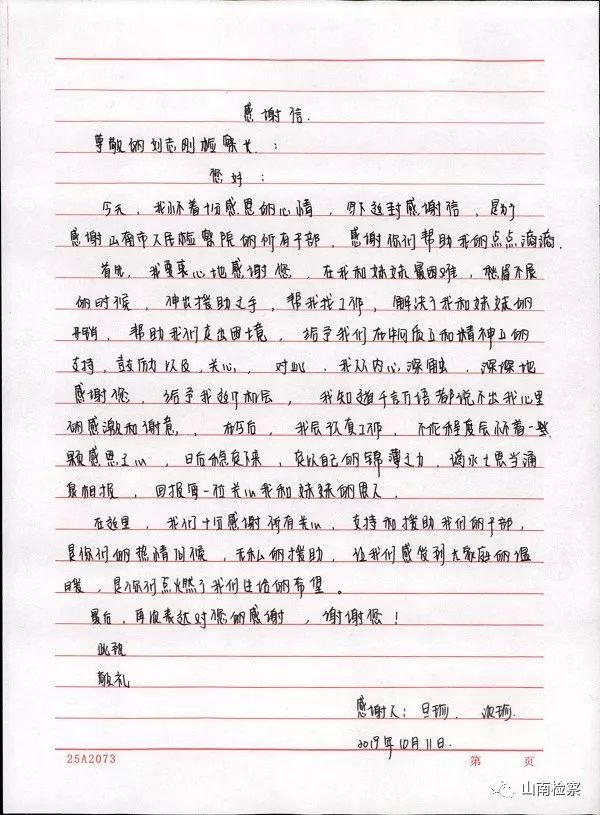 感谢信.
尊敬的刘志刚检察长:
您好:
今天,我怀着十分感恩的心情,写下这封感谢信,是为了
感谢山南市人民检察院的所有干部,感谢你们帮助我的点点滴滴.
首先,我衷心地感谢您,在我和妹妹最困难,愁眉不展
的时候,伸出援助之手,帮我找工作,解决了我和妹妹的
开销,帮助我们走出困境,给予我们在物质上和精神上的
支持,鼓励以及,关心,对此,我从内心深触,深深地
感谢您,给予我这个机会,我知道千言万语都说不出我心里
的感激和谢意,.今后,我会认真工作,不怕程度会怀着一
颗感恩之心,日后稳定下来,定以自己的绵薄之力,滴水之恩当涌
泉相报,回报每一位关心我和妹妹的恩人.
在这里,我们十分感谢所有关心,支持和援助我们的干部,
是你们的热情问候,无私的援助,让我们感受到大家庭的温
暖,是你们点燃了我们生活的希望。
最后,再次表达对您的感谢,谢谢您!
此致
敬礼
感谢人:旦珍.次珍.
2019年10月11日.
25A2073 第 页
山南检察